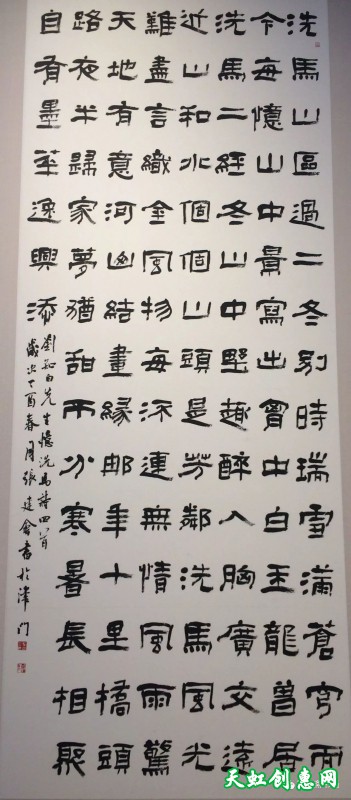 洗馬山區過二冬別時瑞雪滿蒼穹而
今每憶山中景寫出胷中白玉龍曾居
洗馬二經冬山中野趣醉人胸廣交遠
近山和水個個山頭是芳鄰洗馬風光
難盡言織金風物每流連無情風雨驚
天地有意河山結畫緣那年十里橋頭
路夜半歸家夢猶甜不分寒暑長相聚
自有墨華逸興添
劉知白先生憶洗馬詩四首
歲次丁酉春月張建會書於津門
天虹创惠网